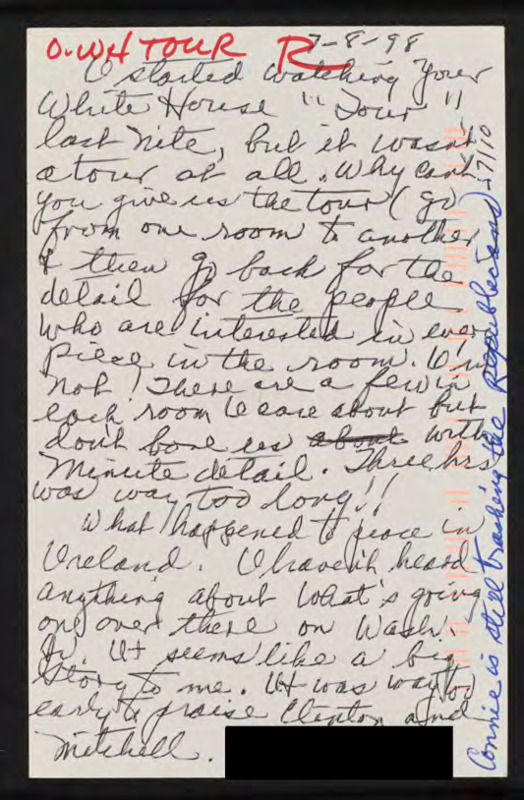 O-WH TOUR R 7-8-98
I started watching your
White House "Tour"
last nite, but it wasn't
a tour at all. Why can't
you give us the tour (go
from one room to another
& then go back for the
detail for the people
who are interested in every
piece in the room. I'm
not! There are a few in
each room I care about but
don't bore us about with
minute detail. Three hrs
was way too long!!
What happened to peace in
Ireland. I haven't heard
anything about what's going
on over there on Wash.
Jr. It seems like a big
story to me. It was way too
early to praise Clinton and
Mitchell.
Connie is still trashing the Republicans - 7/10